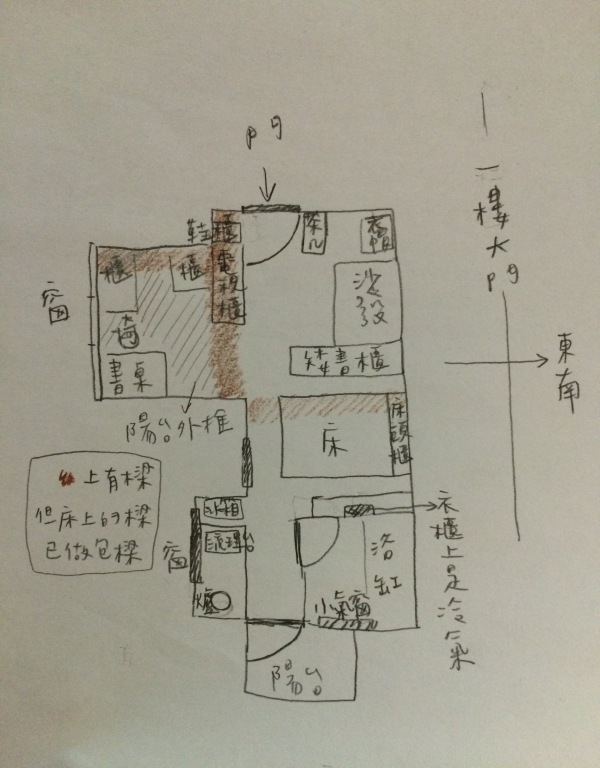 門
一樓大門
鞋櫃
茶几
衣帽
櫃
櫃
電視櫃
沙發
窗
椅
書桌
矮書櫃
東南
陽台外推
床
床頭櫃
上有樑
但床上的樑
已做包樑
冰箱
流理台
窗
爐
浴缸
小氣窗
衣櫃上是冷氣
陽台